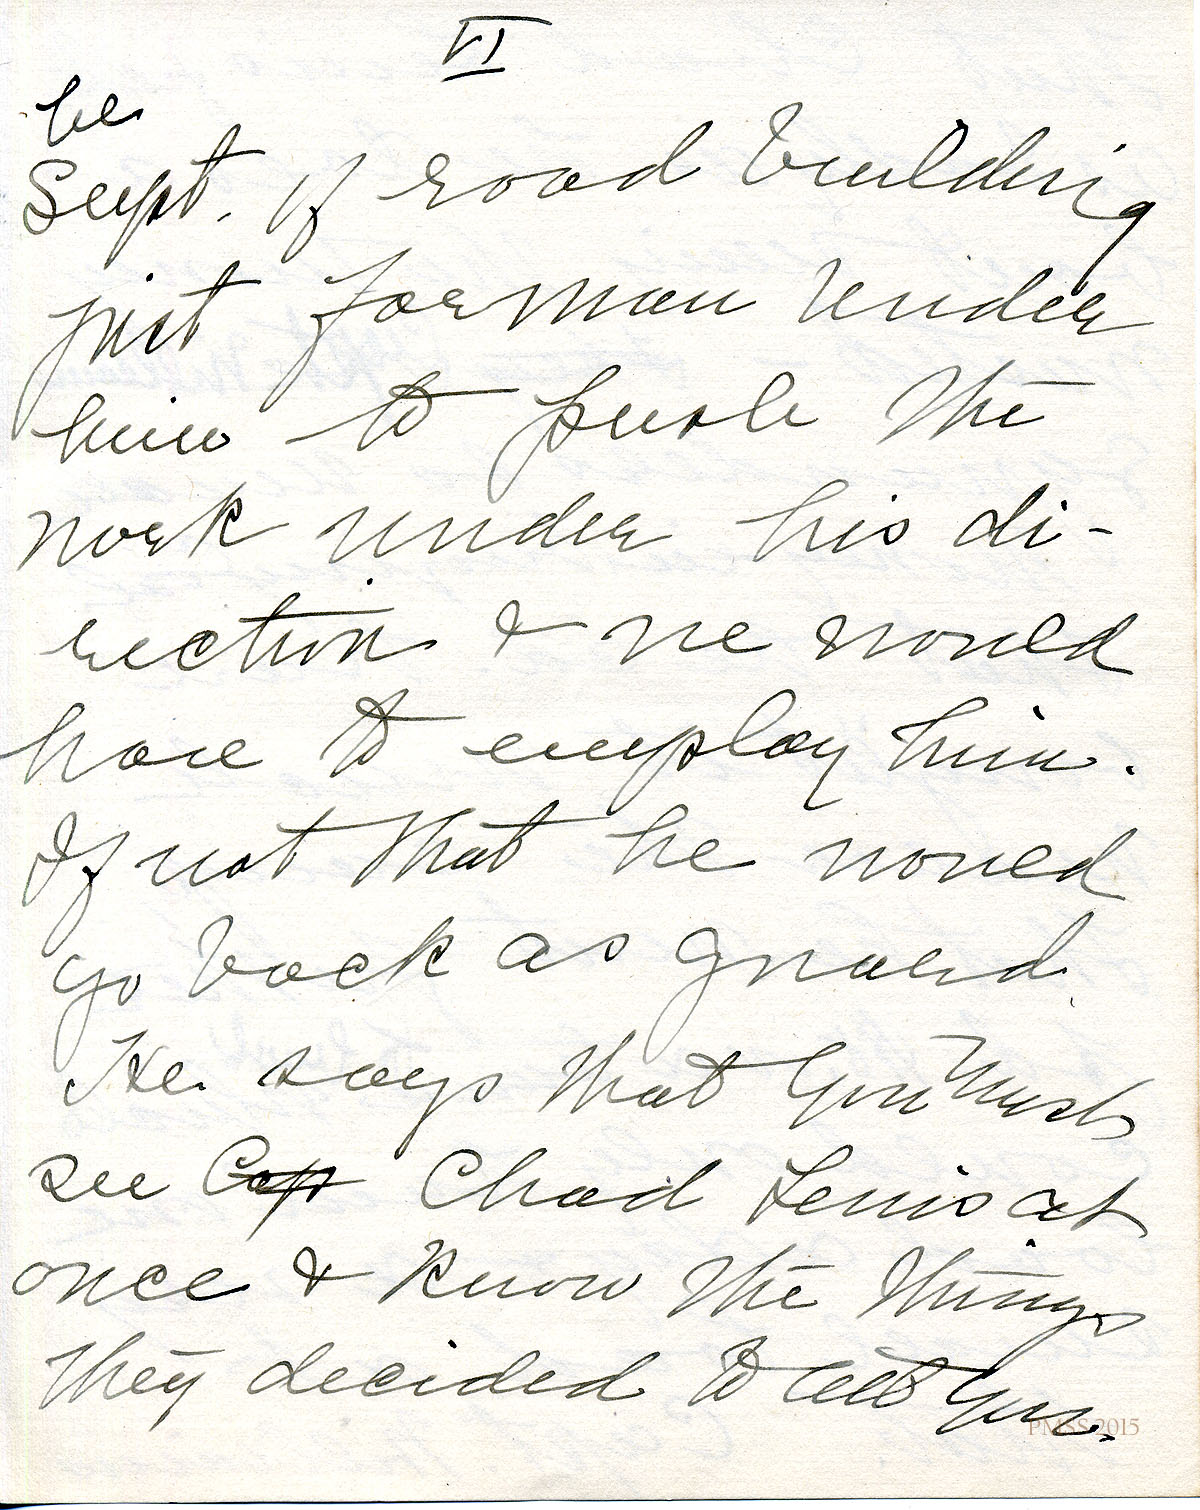 VI
be
Supt. of road building
just forman under
him to push the
work under his di-
rection & we would
have to employ him.
If not that he would
go back as guard.
He says that you must
see Cap Chad Lewis at
once & know the things
they decided to tell you.
PMSS 2015